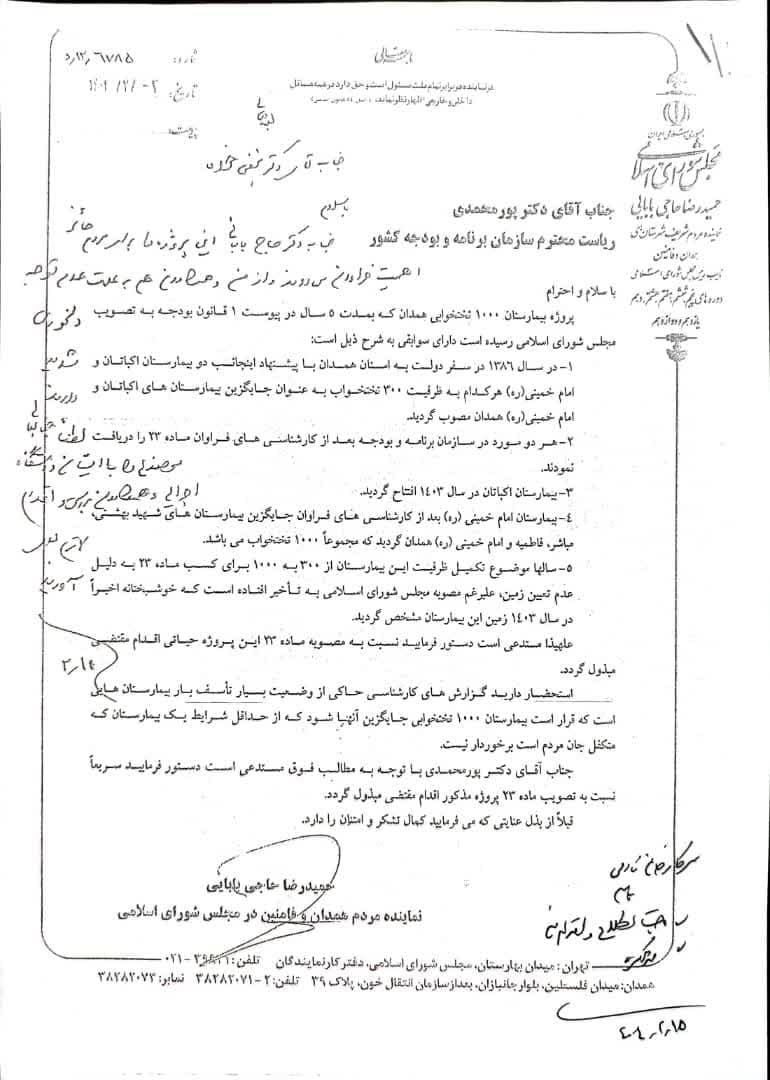 باسمه تعالی
هر نماینده در برابر تمام ملت مسئول است و حق دارد در همه مسائل
داخلی و خارجی اظهار نظر نماید.
شماره:
تاریخ:
پیوست:
جمهوری اسلامی ایران
مجلس شورای اسلامی
حمیدرضا حاجی بابایی
نماینده مردم شریف شهرستان‌های
همدان و فامنین
نایب رییس مجلس شورای اسلامی
دوره های پنجم، ششم، هفتم، هشتم، نهم، دهم
یازدهم و دوازدهم
جناب آقای دکتر
جناب آقای دکتر پورمحمدی
ریاست محترم سازمان برنامه و بودجه کشور
با سلام
جناب دکتر حاجی بابایی این پروژه را برای مردم حائز
اهمیت فراوان می دانند و از من و همکاران هم به علت عدم توجه
دلخوری
شدید
دارند
لطفاً
با سلام و احترام
پروژه بیمارستان ۱۰۰۰ تختخوابی همدان که بمدت ۵ سال در پیوست ۱ قانون بودجه به تصویب
مجلس شورای اسلامی رسیده است دارای سوابقی به شرح ذیل است:
۱- در سال ۱۳۸۶ در سفر دولت به استان همدان با پیشنهاد اینجانب دو بیمارستان اکباتان و
امام خمینی(ره) هرکدام به ظرفیت ۳۰۰ تختخواب به عنوان جایگزین بیمارستان های اکباتان و
امام خمینی(ره) همدان مصوب گردید.
۲- هر دو مورد در سازمان برنامه و بودجه بعد از کارشناسی های فراوان ماده ۲۳ را دریافت
نمودند.
۳- بیمارستان اکباتان در سال ۱۴۰۳ افتتاح گردید.
۴- بیمارستان امام خمینی (ره) بعد از کارشناسی های فراوان جایگزین بیمارستان های شهید بهشتی،
مباشر، فاطمیه و امام خمینی (ره) همدان گردید که مجموعاً ۱۰۰۰ تختخواب می باشد.
۵- سالها موضوع تکمیل ظرفیت این بیمارستان از ۳۰۰ به ۱۰۰۰ برای کسب ماده ۲۳ به دلیل
عدم تعیین زمین، علیرغم مصوبه مجلس شورای اسلامی به تأخیر افتاده است که خوشبختانه اخیراً
در سال ۱۴۰۳ زمین این بیمارستان مشخص گردید.
علهیذا مستدعی است دستور فرمایید نسبت به مصوبه ماده ۲۳ این پروژه حیاتی اقدام مقتضی
مبذول گردد.
استحضار دارید گزارش های کارشناسی حاکی از وضعیت بسیار تأسف بار بیمارستان هایی
است که قرار است بیمارستان ۱۰۰۰ تختخوابی جایگزین آنهیا شود که از حداقل شرایط یک بیمارستان که
متکفل جان مردم است برخوردار نیست.
جناب آقای دکتر پورمحمدی با توجه به مطالب فوق مستدعی است دستور فرمایید سریعاً
نسبت به تصویب ماده ۲۳ پروژه مذکور اقدام مقتضی مبذول گردد.
قبلاً از بذل عنایتی که می فرمایید کمال تشکر و امتنان را دارد.
حمیدرضا حاجی بابایی
نماینده مردم همدان و فامنین در مجلس شورای اسلامی
سرکار خانم
تهران: میدان بهارستان، مجلس شورای اسلامی، دفتر کار نمایندگان تلفن:
همدان: میدان فلسطین، بلوار جانبازان، بعد از سازمان انتقال خون، پلاک ۳۹ تلفن: ۲-۳۸۲۸۲۰۷۱ نمابر: ۳۸۲۸۲۰۷۳